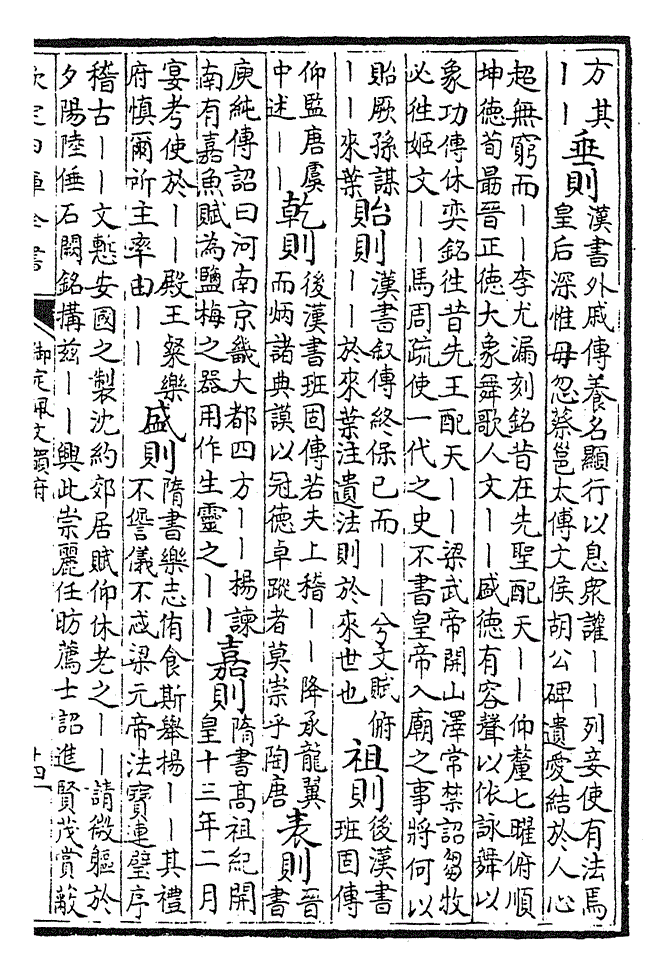 方其
丨丨
垂則
漢書外戚傳養名顯行以息衆讙丨丨列妾使有法焉
皇后深惟毋忽蔡邕太傅文侯胡公碑遺愛結於人心
超無窮而丨丨李尤漏刻銘昔在先聖配天丨丨仰釐七曜俯順
坤德荀最晉正德大象舞歌人文丨丨盛德有容聲以依詠舞以
象功傳休奕銘徃昔先王配天丨丨梁武帝開山澤常禁詔芻牧
必徃姬文丨丨馬周疏使一代之史不書皇帝入廟之事將何以
貽厥孫謀
丨丨來葉
貽則
漢書叙傳終保已而丨丨兮文賦俯
丨丨於來葉注遺法則於來世也
祖則
後漢書
班固傳
仰監唐虞
中述丨丨
乾則
後漢書班固傳若夫上稽丨丨降承龍翼
而炳諸典謨以冠德卓蹤者莫崇乎陶唐
表則
晉
書
庾純傳詔曰河南京畿大都四方丨丨楊諫
南有嘉魚賦為鹽梅之器用作生靈之丨丨
嘉則
隋書高祖紀開
皇十三年二月
宴考使於丨丨殿王粲樂
府慎爾所主率由丨丨
盛則
隋書樂志侑食斯舉揚丨丨其禮
不諐儀不忒梁元帝法寶連璧序
稽古丨丨文慙安國之製沈約郊居賦仰休老之丨丨請微軀於
夕陽陸倕石闕銘搆兹丨丨興此崇麗任昉薦士詔進賢茂賞蔽
欽定四庫全書
御定佩文韻府
十四